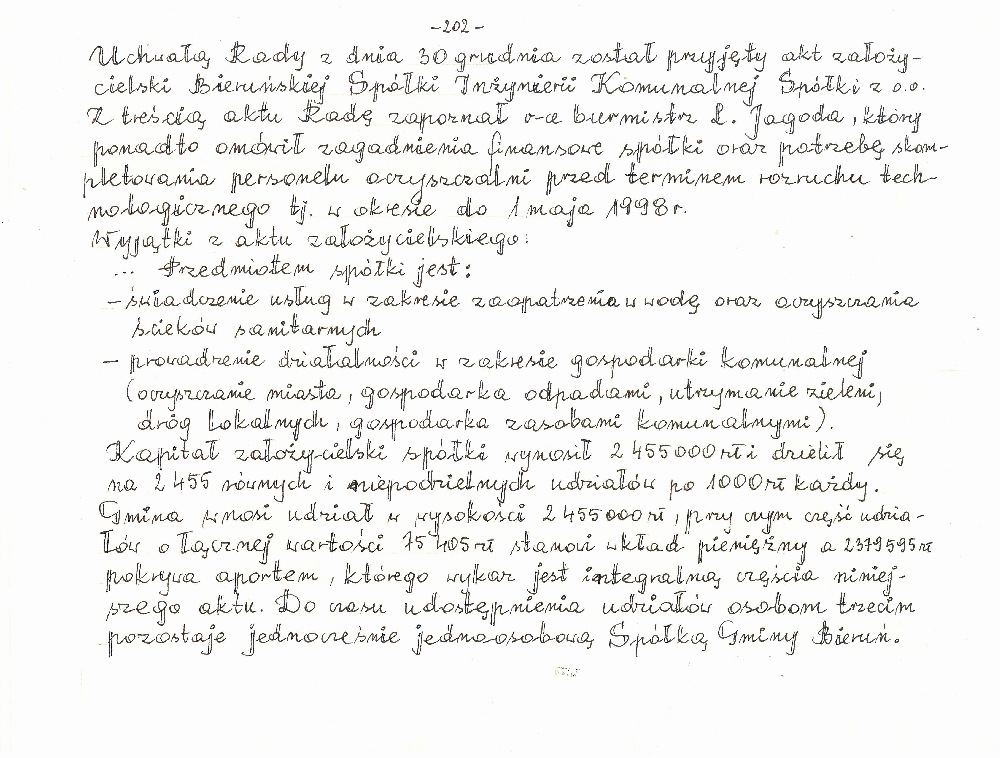 -202-
Uchwałą Rady z dnia 30 grudnia został przyjęty akt założy-
cielski Bieruńskiej Spółki Inżynierii Komunalnej Spółki z o.o.
Z treścią aktu Radę zapoznał v-ce burmistrz L. Jagoda, który
ponadto omówił zagadnienia finansowe spółki oraz potrzebę skom-
pletowania personelu oczyszczalni przed terminem rozruchu tech-
nologicznego tj. w okresie do 1 maja 1998 r.
Wyjątki z aktu założycielskiego:
... Przedmiotem spółki jest:
- świadczenie usług w zakresie zaopatrzenia w wodę oraz oczyszczania
ścieków sanitarnych
- prowadzenie działalności w zakresie gospodarki komunalnej
(oczyszczanie miasta, gospodarka odpadami, utrzymanie zieleni,
dróg lokalnych, gospodarka zasobami komunalnymi).
Kapitał założycielski spółki wynosił 2 455 000 zł i dzielił się
na 2 455 równych i niepodzielnych udziałów po 1000 zł każdy.
Gmina wnosi udział w wysokości 2 455 000 zł, przy czym część udzia-
łów o łącznej wartości 75 405 zł stanowi wkład pieniężny a 2379595 zł
pokrywa aportem, którego wykaz jest integralną częścią niniej-
szego aktu. Do czasu udostępnienia udziałów osobom trzecim
pozostaje jednocześnie jednoosobową Spółką Gminy Bieruń.